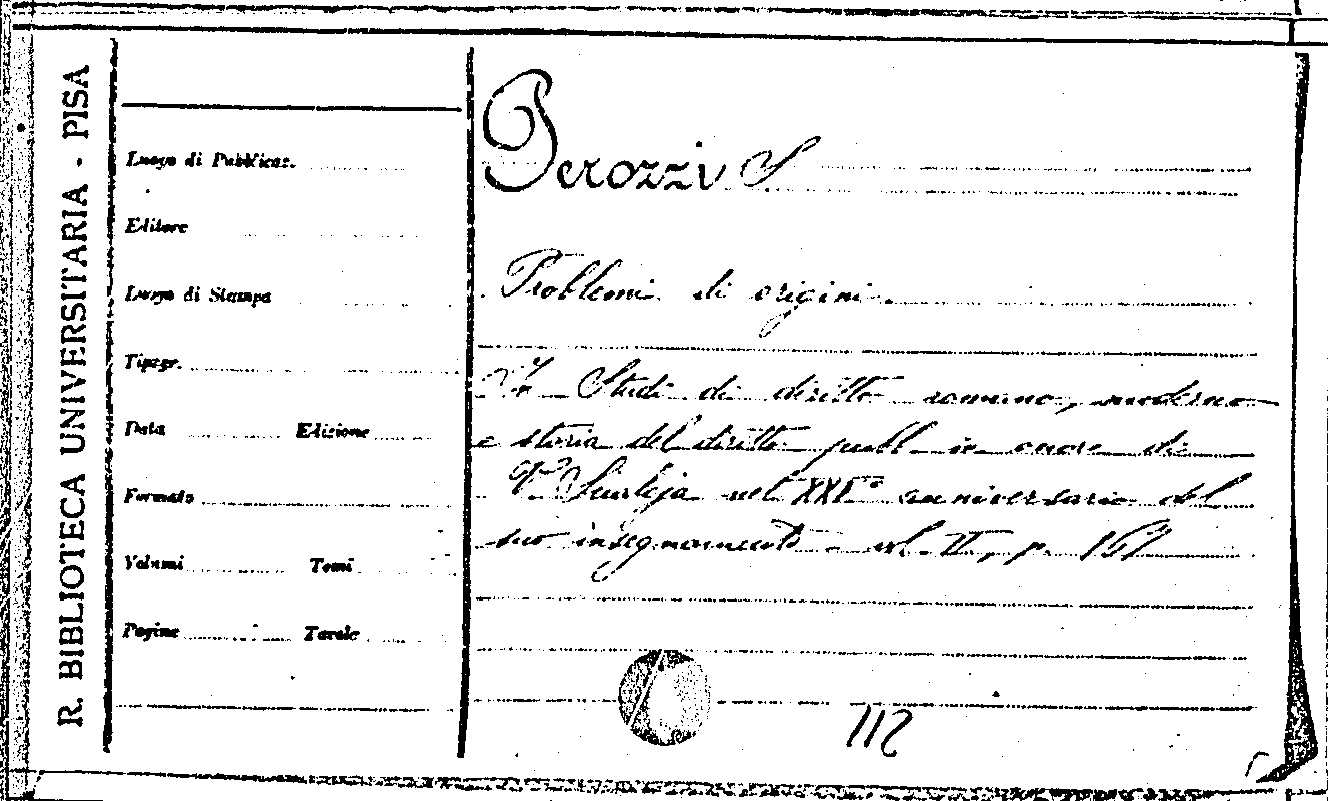 R. BIBLIOTECA UNIVERSITARIA - PISA
Luogo di Pubblicaz.
Editore
Luogo di Stampa
Tipogr.
Data Edizione
Formato
Volumi Tomi
Pagine Tavole
Perozzi S
Problemi di origini.
In Studi di diritto romano, moderno
e storia del diritto pubbl in onore di
V. Scialoja nel XXV° anniversario del
suo insegnamento - vol. II, p.
112